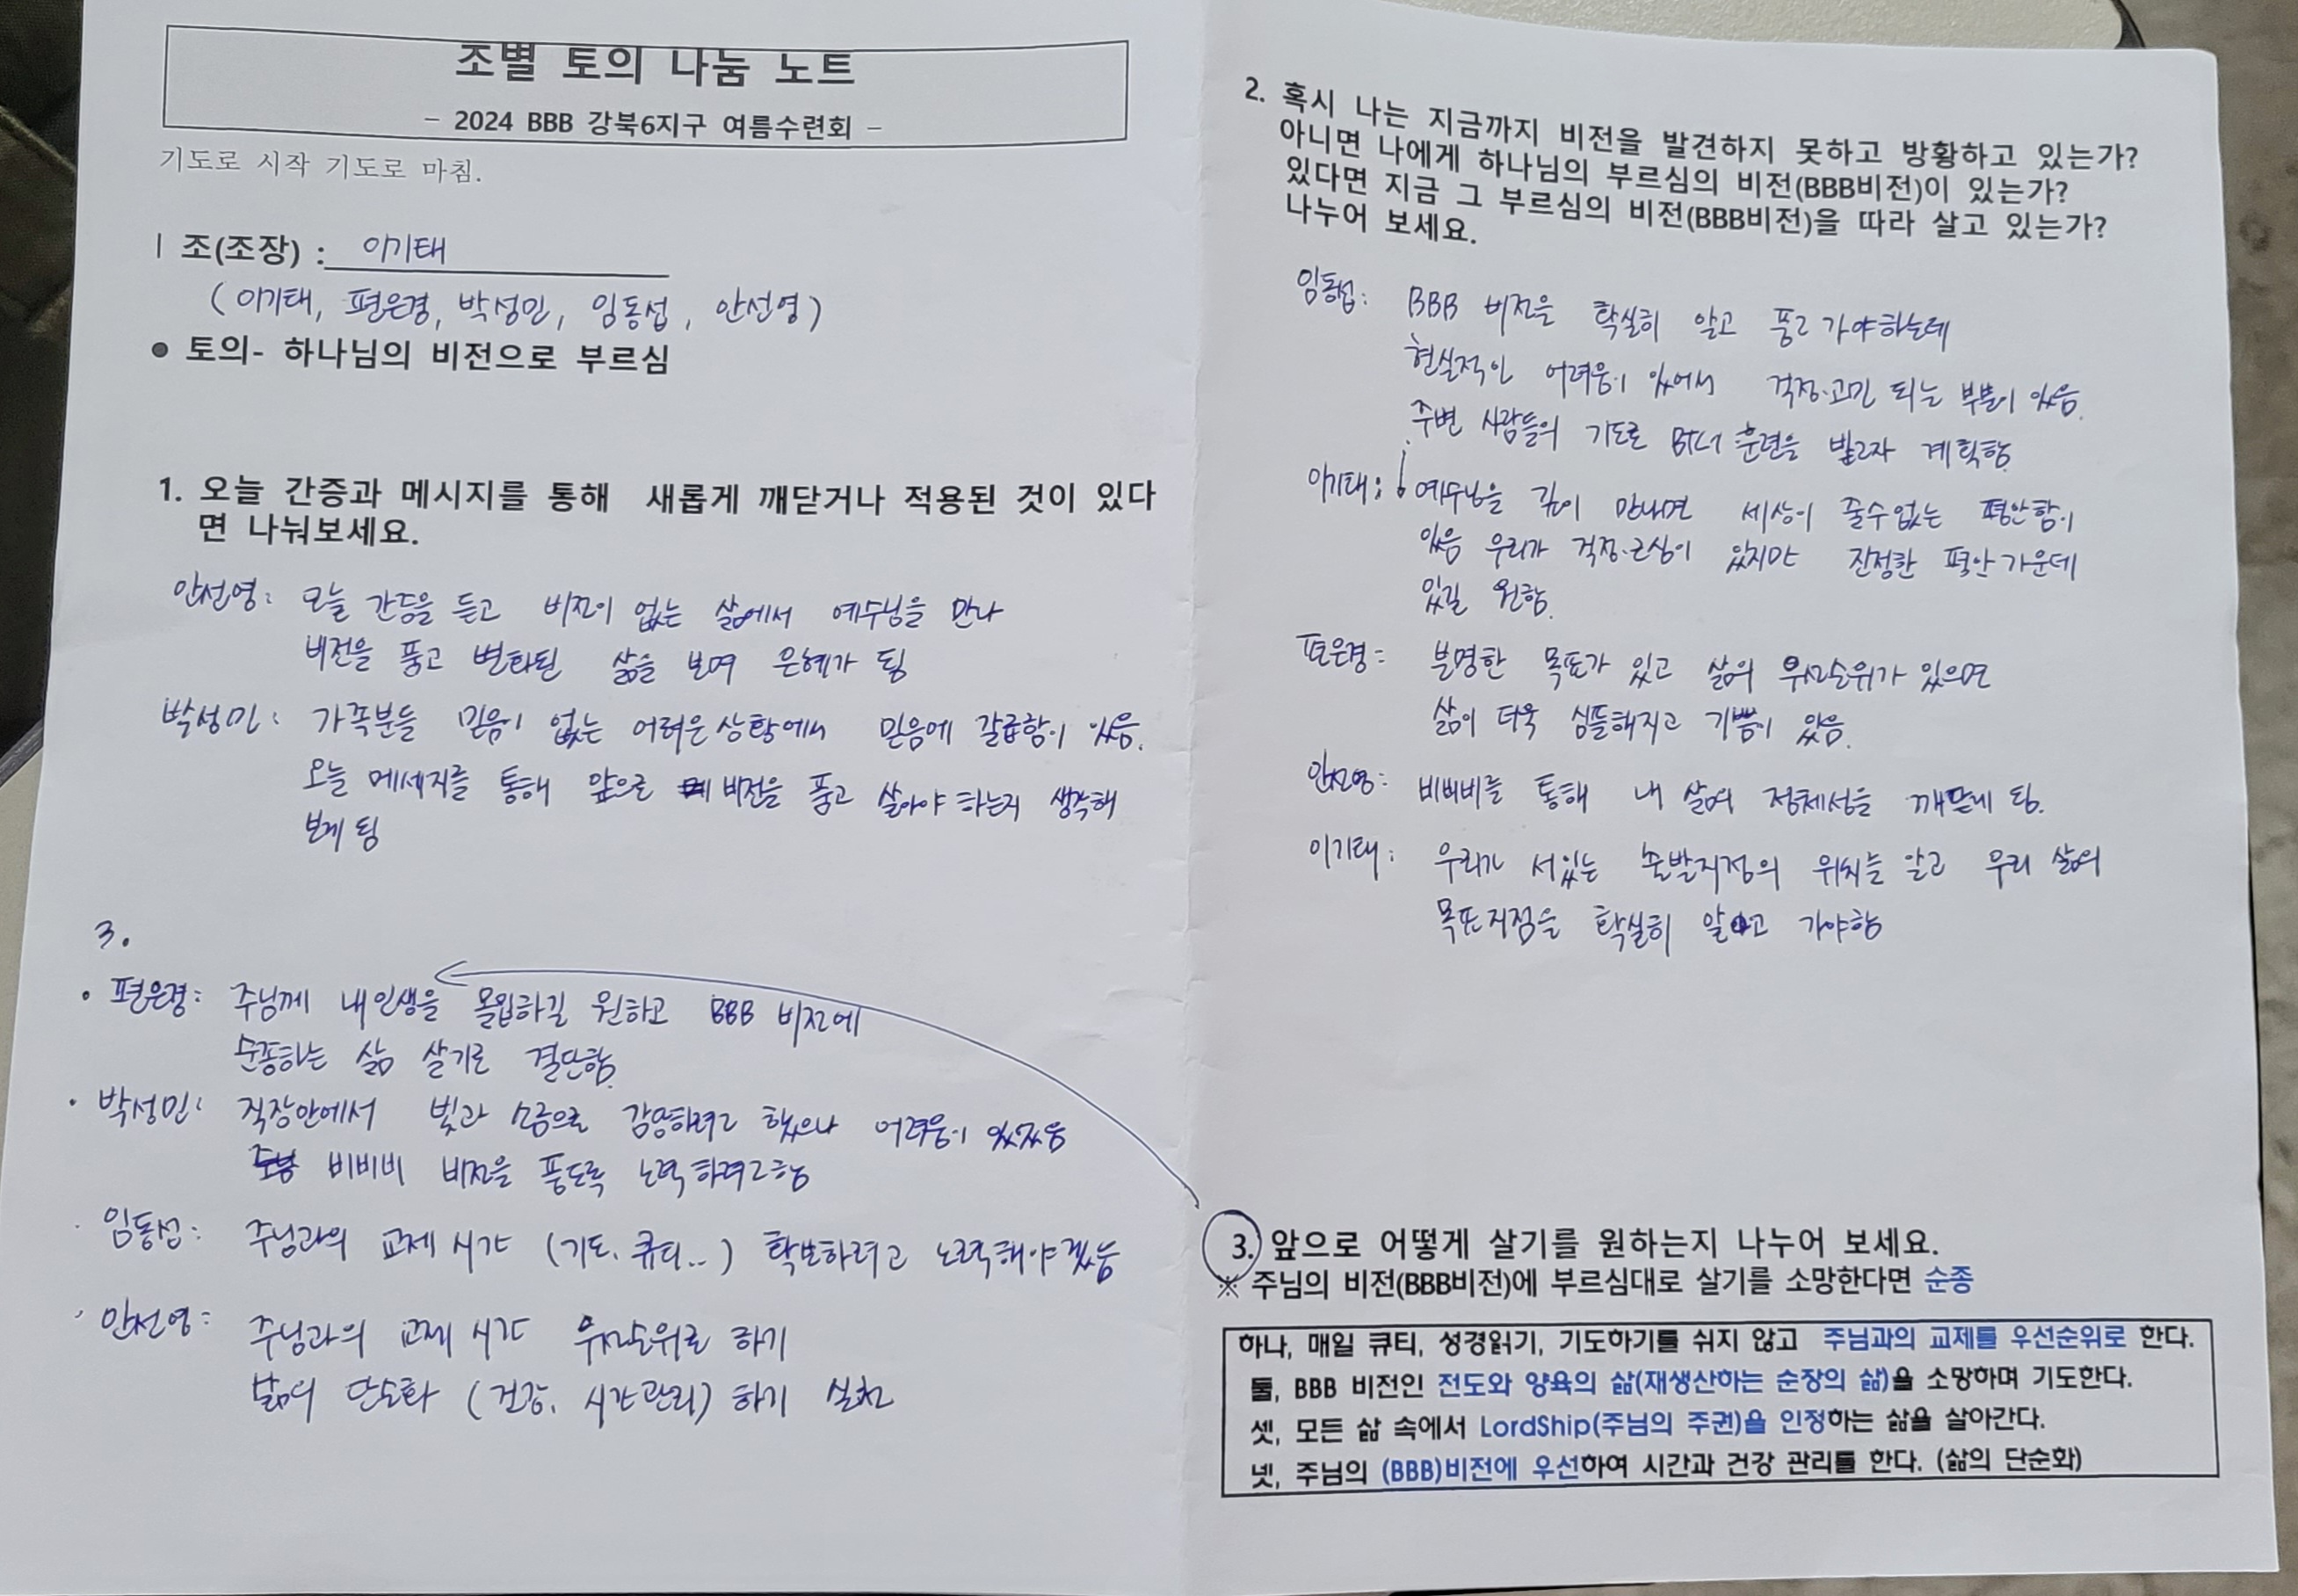 조별 토의 나눔 노트
- 2024 BBB 강북6지구 여름수련회 -
기도로 시작 기도로 마침.
1 조(조장) : 이기태
(이기태, 편은경, 박성민, 임동섭, 안선영)
● 토의- 하나님의 비전으로 부르심
1. 오늘 간증과 메시지를 통해 새롭게 깨닫거나 적용된 것이 있다
면 나눠보세요.
안선영: 오늘 간증을 듣고 비전이 없는 삶에서 예수님을 만나
비전을 품고 변화된 삶을 보며 은혜가 됨
박성민: 가족분들 믿음이 없는 어려운 상황에서 믿음에 갈급함이 있음.
오늘 메세지를 통해 앞으로 비전을 품고 살아야 하는지 생각해
보게 됨
3.
• 편은경: 주님께 내 인생을 몰입하길 원하고 BBB 비전에
순종하는 삶 살기로 결단함.
• 박성민: 직장안에서 빛과 소금으로 감당하려고 했으나 어려움이 있었음
비비비 비전을 품도록 노력하려고함
· 임동섭: 주님과의 교제 시간 (기도, 큐티..) 확보하려고 노력해야겠음
· 안선영: 주님과의 교제 시간 우선순위로 하기
삶의 단순화 (건강, 시간관리) 하기 실천
2. 혹시 나는 지금까지 비전을 발견하지 못하고 방황하고 있는가?
아니면 나에게 하나님의 부르심의 비전(BBB비전)이 있는가?
있다면 지금 그 부르심의 비전(BBB비전)을 따라 살고 있는가?
나누어 보세요.
임동섭: BBB 비전을 확실히 알고 품고 가야하는데
현실적인 어려움이 있어서 걱정·고민 되는 부분이 있음.
주변 사람들의 기도로 BTC 훈련을 받고자 계획함.
이기태: 예수님을 깊이 만나면 세상이 줄수없는 평안함이
있음 우리가 걱정·근심이 있지만 진정한 평안 가운데
있길 원함.
편은경: 분명한 목표가 있고 삶의 우선순위가 있으면
삶이 더욱 심플해지고 기쁨이 있음.
안선영: 비비비를 통해 내 삶의 정체성을 깨닫게 됨.
이기태: 우리가 서있는 출발지점의 위치를 알고 우리 삶의
목표지점을 확실히 알고 가야함
3. 앞으로 어떻게 살기를 원하는지 나누어 보세요.
※ 주님의 비전(BBB비전)에 부르심대로 살기를 소망한다면 순종
하나, 매일 큐티, 성경읽기, 기도하기를 쉬지 않고 주님과의 교제를 우선순위로 한다.
둘, BBB 비전인 전도와 양육의 삶(재생산하는 순장의 삶)을 소망하며 기도한다.
셋, 모든 삶 속에서 LordShip(주님의 주권)을 인정하는 삶을 살아간다.
넷, 주님의 (BBB)비전에 우선하여 시간과 건강 관리를 한다. (삶의 단순화)